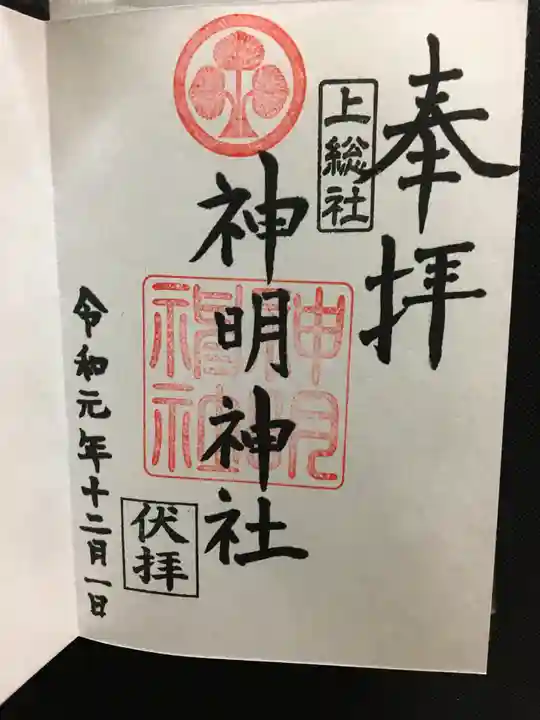 奉拝
上総社
神明神社
神明
神社
伏拝
令和元年十二月一日